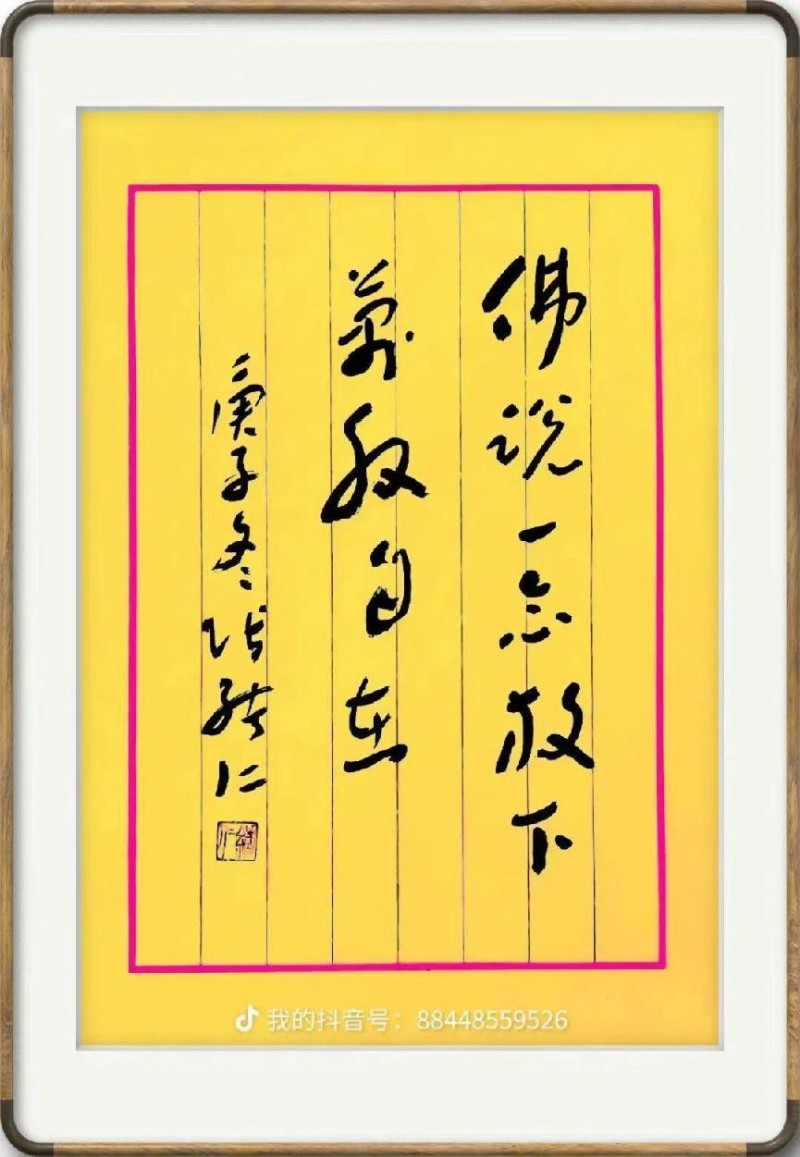 佛说一念放下
万般自在
庚子冬张结仁
我的抖音号：88448559526